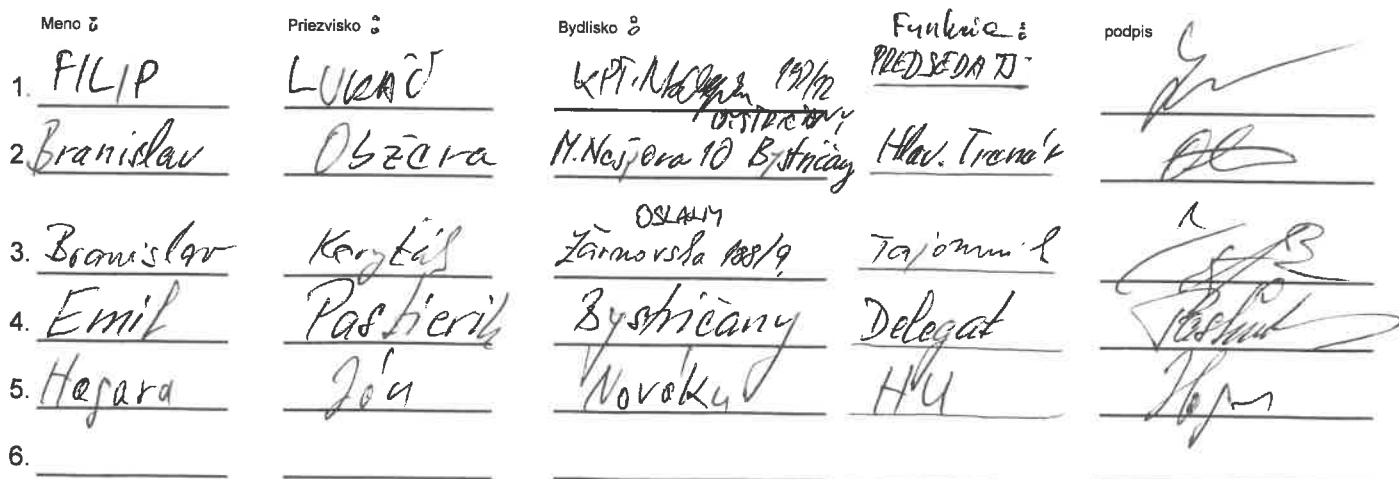 Meno : Priezvisko : Bydlisko : Funkcia : podpis
1. FILIP LUKÁČ KPT. 192/12 BYSTRIČANY PREDSEDA TJ
2. Branislav Obžera M. Nešpora 10 Bystričany Hlav. Trenér
3. Branislav OSLANY Žarnovska 188/9 Tajomník
4. Emil Pastierik Bystričany Delegat
5. Hagara Ján Nováky HU
6.